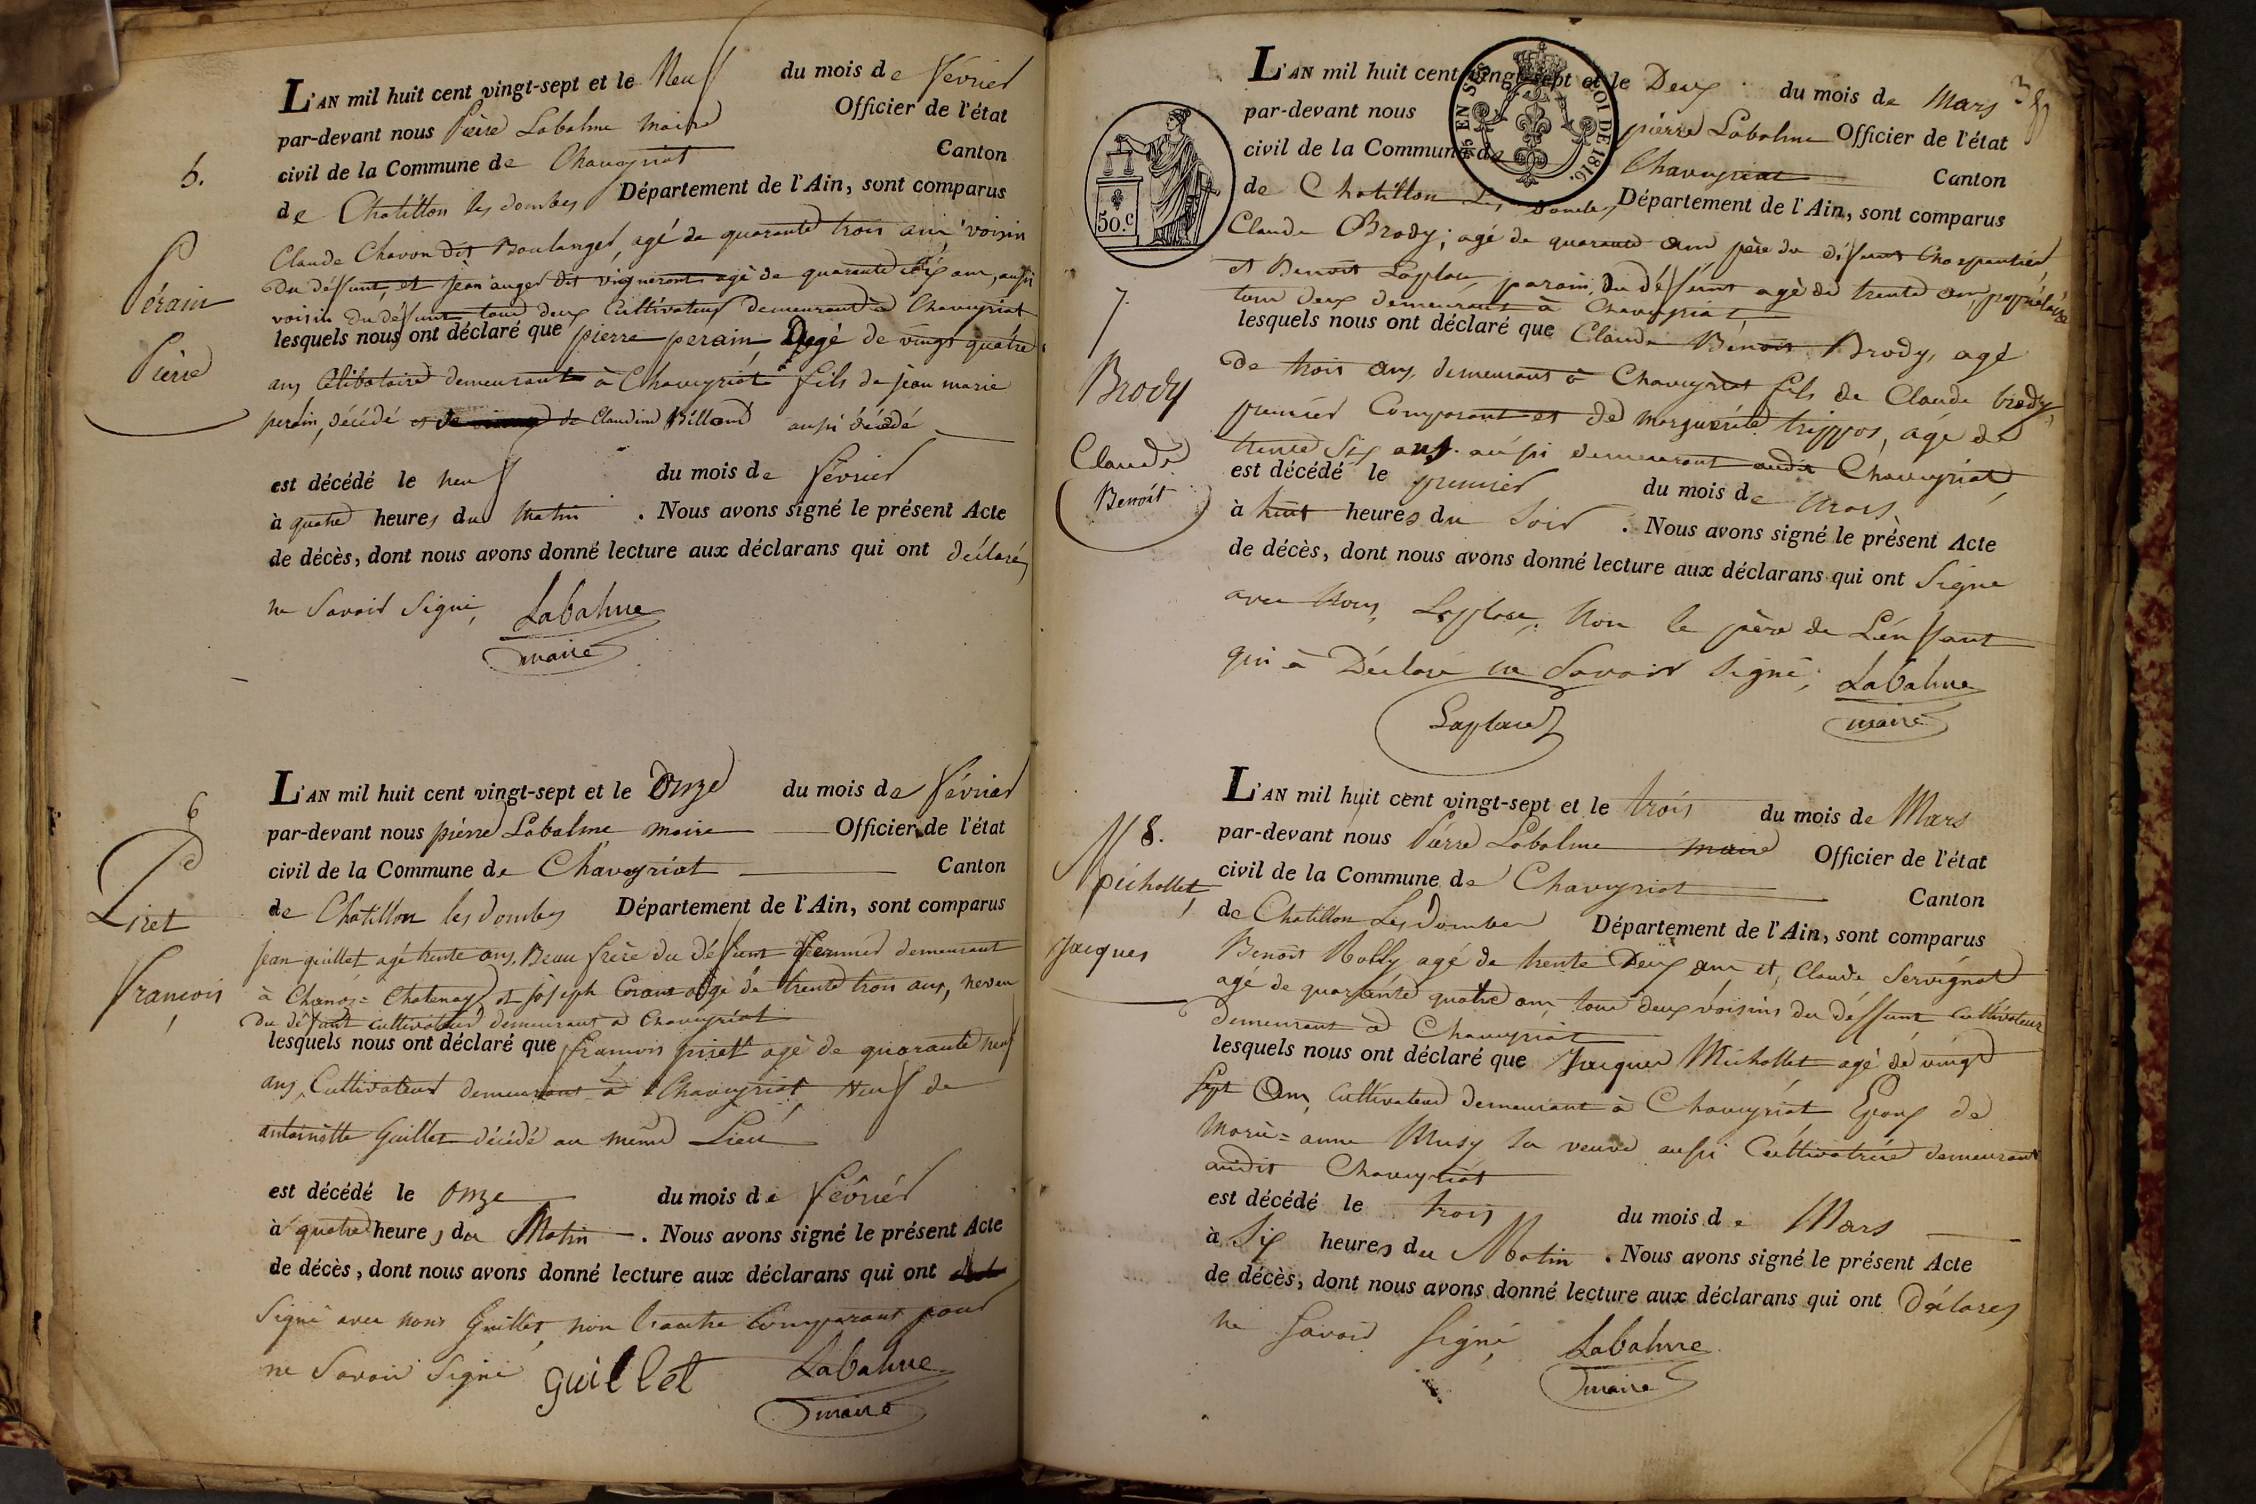 5.
Pérain
Pierre
L'AN mil huit cent vingt-sept et le Neuf du mois de février
par-devant nous Pierre Labalme maire Officier de l'état
civil de la Commune de Chaveyriat Canton
de Chatillon les dombes Département de l'Ain, sont comparus
Claude Chavon dit Boulanger, agé de quarante trois ans voisin
du défunt, et jean auger dit vigneront agé de quarante six ans, aussi
voisin du défunt tous deux Cultivateurs demeurant à Chaveyriat
lesquels nous ont déclaré que pierre perain, Agé de vingt quatre
ans Célibataire demeurant à Chaveyriat fils de jean marie
perain, décédé et de Claudine Billoud aussi décédé
est décédé le neuf du mois de février
à quatre heures du Matin . Nous avons signé le présent Acte
de décès, dont nous avons donné lecture aux déclarans qui ont déclarés
ne Savoir Signé, Labalme
maire
6
Piret
François
L'AN mil huit cent vingt-sept et le Onze du mois de février
par-devant nous pierre Labalme maire Officier de l'état
civil de la Commune de Chaveyriat Canton
de Chatillon les dombes Département de l'Ain, sont comparus
jean guillet agé trente ans, Beau frère du défunt fermier demeurant
à Chanoz=Chatenay, et joseph agé de trente trois ans, neveu
du défunt cultivateur demeurant à Chaveyriat
lesquels nous ont déclaré que françois piret agé de quarante neuf
ans, Cultivateur demeurant à Chaveyriat, Veuf de
antoinette Guillet décédé au même Lieu
est décédé le Onze du mois de février
à quatre heures du Matin . Nous avons signé le présent Acte
de décès, dont nous avons donné lecture aux déclarans qui ont
Signé avec nous Guillet, non l'autre Comparant pour
ne Savoir Signé guillet Labalme
maire
7.
Brody
Claude
Benoit
50.c
L'AN mil huit cent vingt-sept et le Deux du mois de Mars
par-devant nous pierre Labalme Officier de l'état
civil de la Commune de Chaveyriat Canton
de Chatillon Les Dombes Département de l'Ain, sont comparus
Claude Brody; agé de quarante ans, père du défunt Charpentier
et Benoit Laplace, parain du défunt agé de trente ans propriétaire
tous deux demeurant à Chaveyriat
lesquels nous ont déclaré que Claude Benoit Brody, agé
de trois ans, demeurant à Chaveyriat fils de Claude brody,
premier Comparant et de marguerite trippos, agé de
trente Six ans. aussi demeurant audit Chaveyriat,
est décédé le premier du mois de Mars
à huit heures du Soir . Nous avons signé le présent Acte
de décès, dont nous avons donné lecture aux déclarans qui ont Signé
avec Nous, Laplace, Non le père de L'enffant
qui à Déclaré ne Savoir Signé, Labalme
Laplace maire
8.
Michollet,
Jacques
L'AN mil huit cent vingt-sept et le trois du mois de Mars
par-devant nous Pierre Labalme maire Officier de l'état
civil de la Commune de Chaveyriat Canton
de Chatillon Les Dombes Département de l'Ain, sont comparus
Benoit Rolly agé de trente Deux ans et, Claude Servignat
agé de quarante quatre ans, tous deux voisins du déffunt Cultivateur
demeurant à Chaveyriat
lesquels nous ont déclaré que Jacques Michollet agé de vingt
Sept Ans, Cultivateur demeurant à Chaveyriat, Epoux de
Marie=anne Musy Sa veuve aussi Cultivatrice demeurant
audit Chaveyriat
est décédé le trois du mois de Mars
à Six heures du Matin . Nous avons signé le présent Acte
de décès, dont nous avons donné lecture aux déclarans qui ont Déclarés
ne Savoir Signé, Labalme
maire